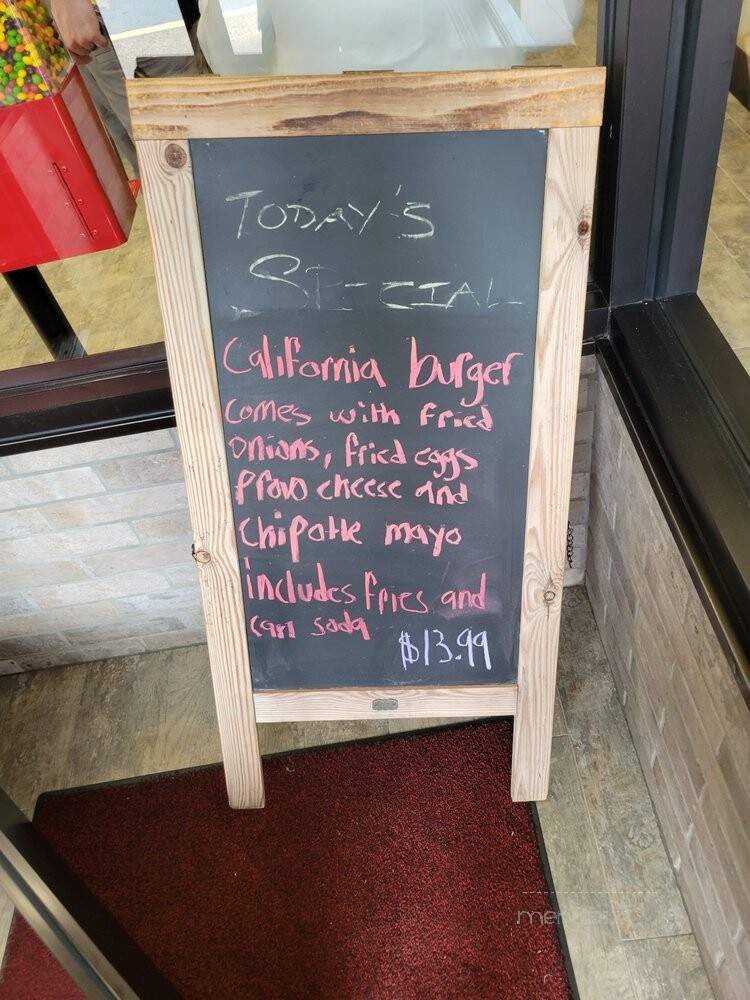 TODAY'S
SPECIAL
California burger
comes with fried
onions, fried eggs
provo cheese and
chipotle mayo
includes fries and
can soda
$13.99